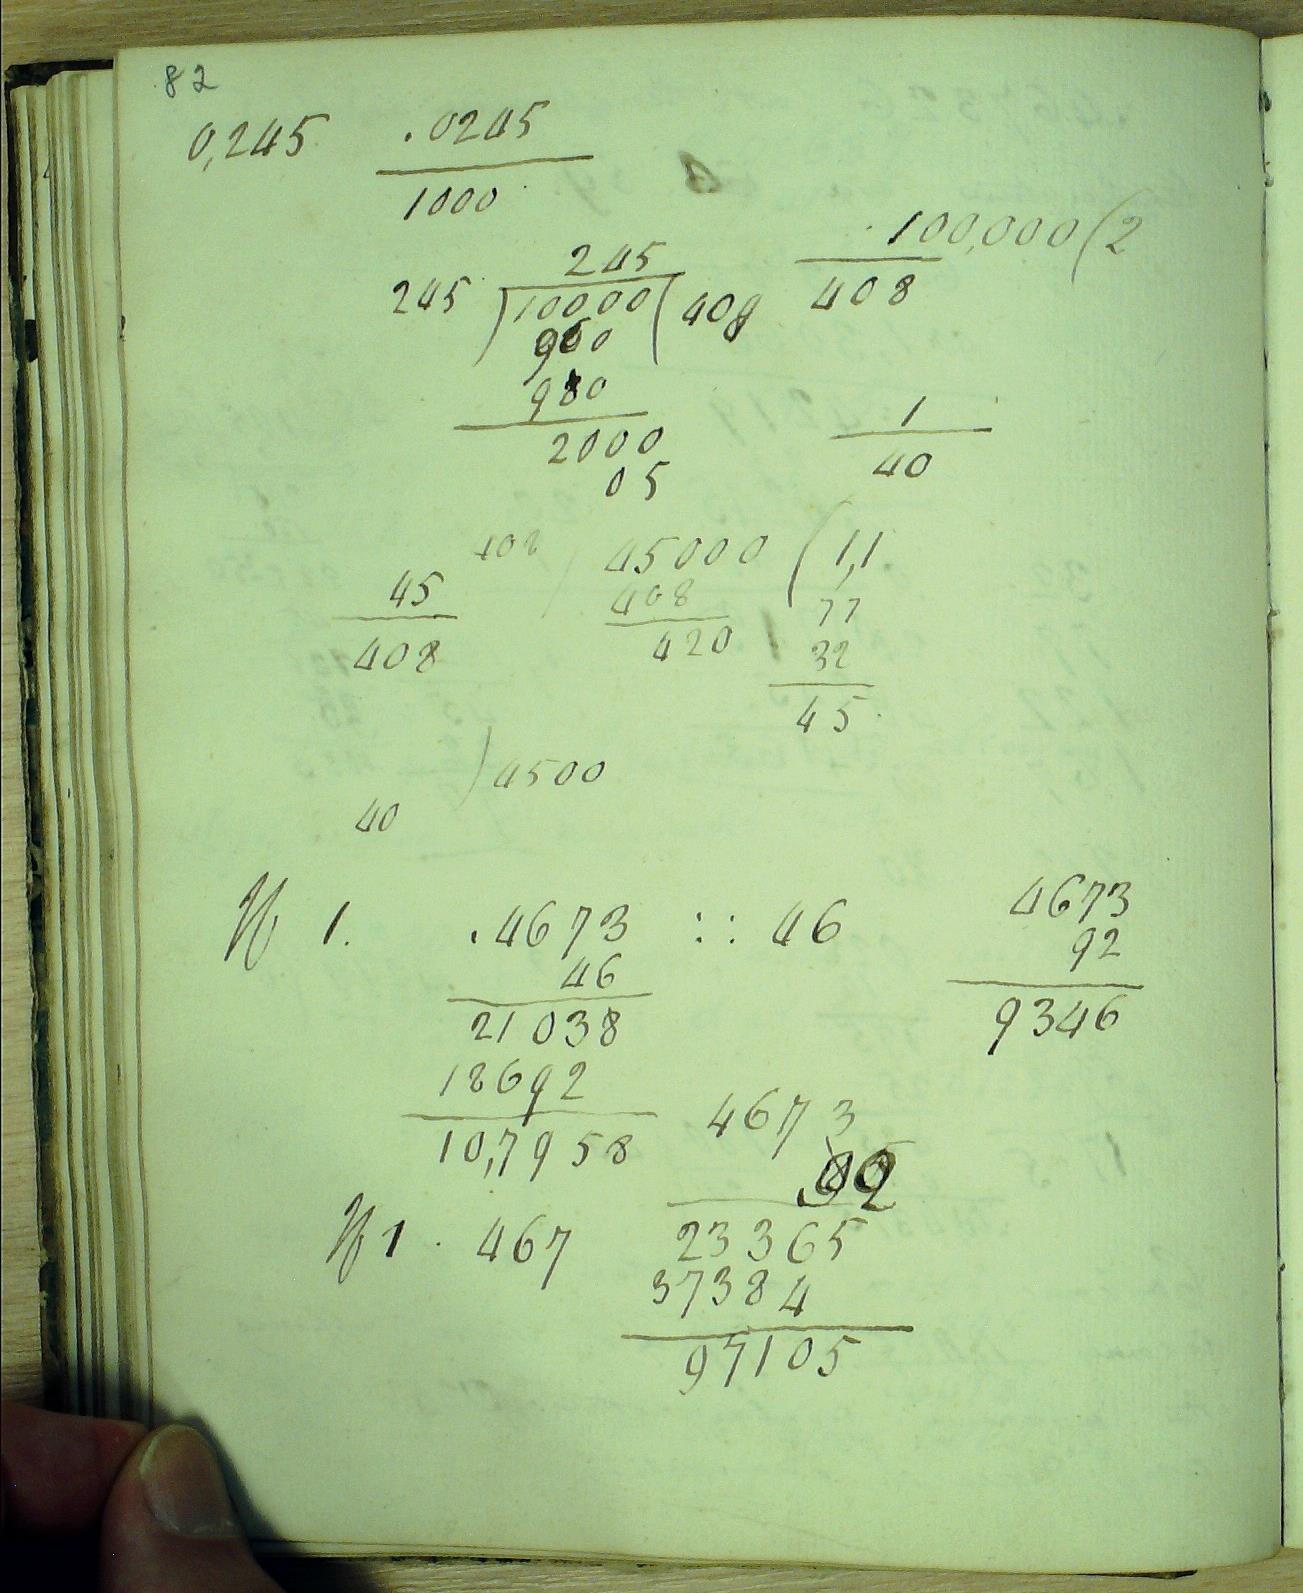 82
0,245 .0245
1000
100,000(2
408
245
245 )10000( 408
900
980
2000
05
1
40
45
408
408 45000 (1,1
408 77
420 32
45
)4500
40
1. .4673 :: 46
46
21038
18692
10,7958
4673
92
9346
4673
23365
37384
97105
1. 467